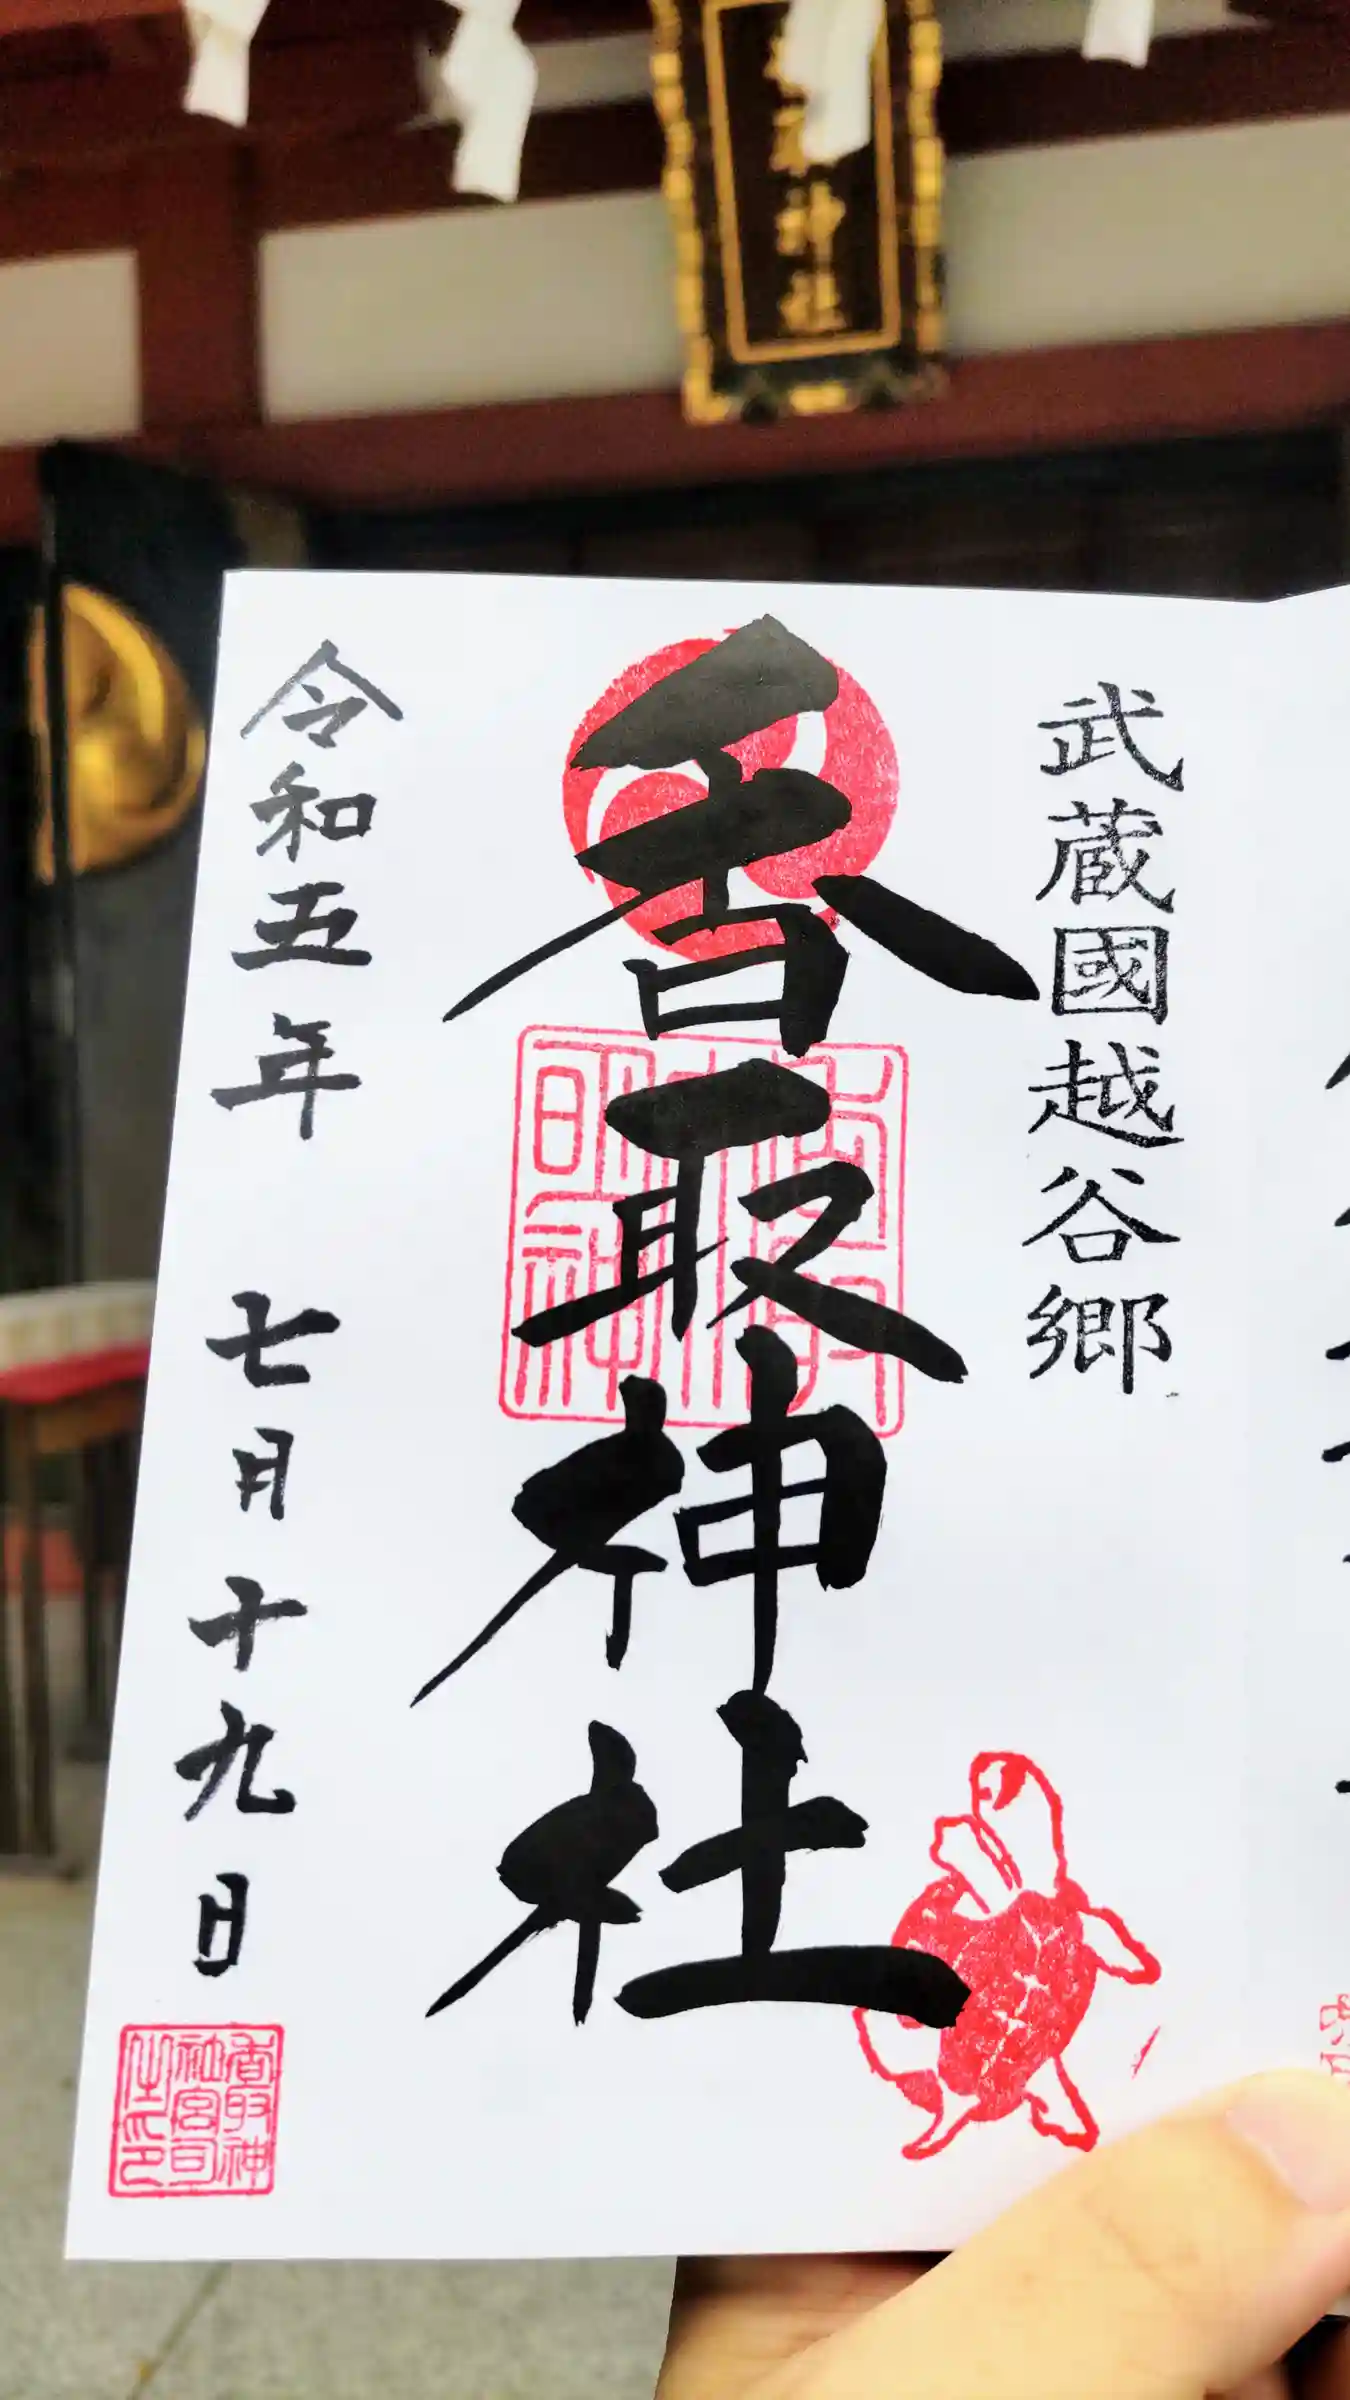 神社
武蔵國越谷郷
香取神社
令和五年 七月十九日
香取神
社宮司
之印